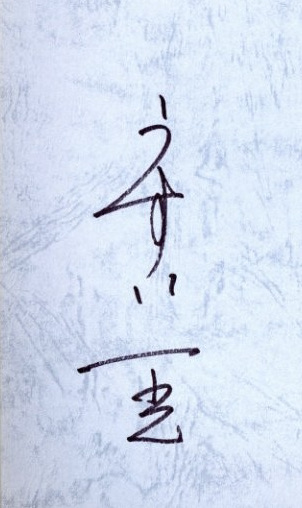 うすい
一光